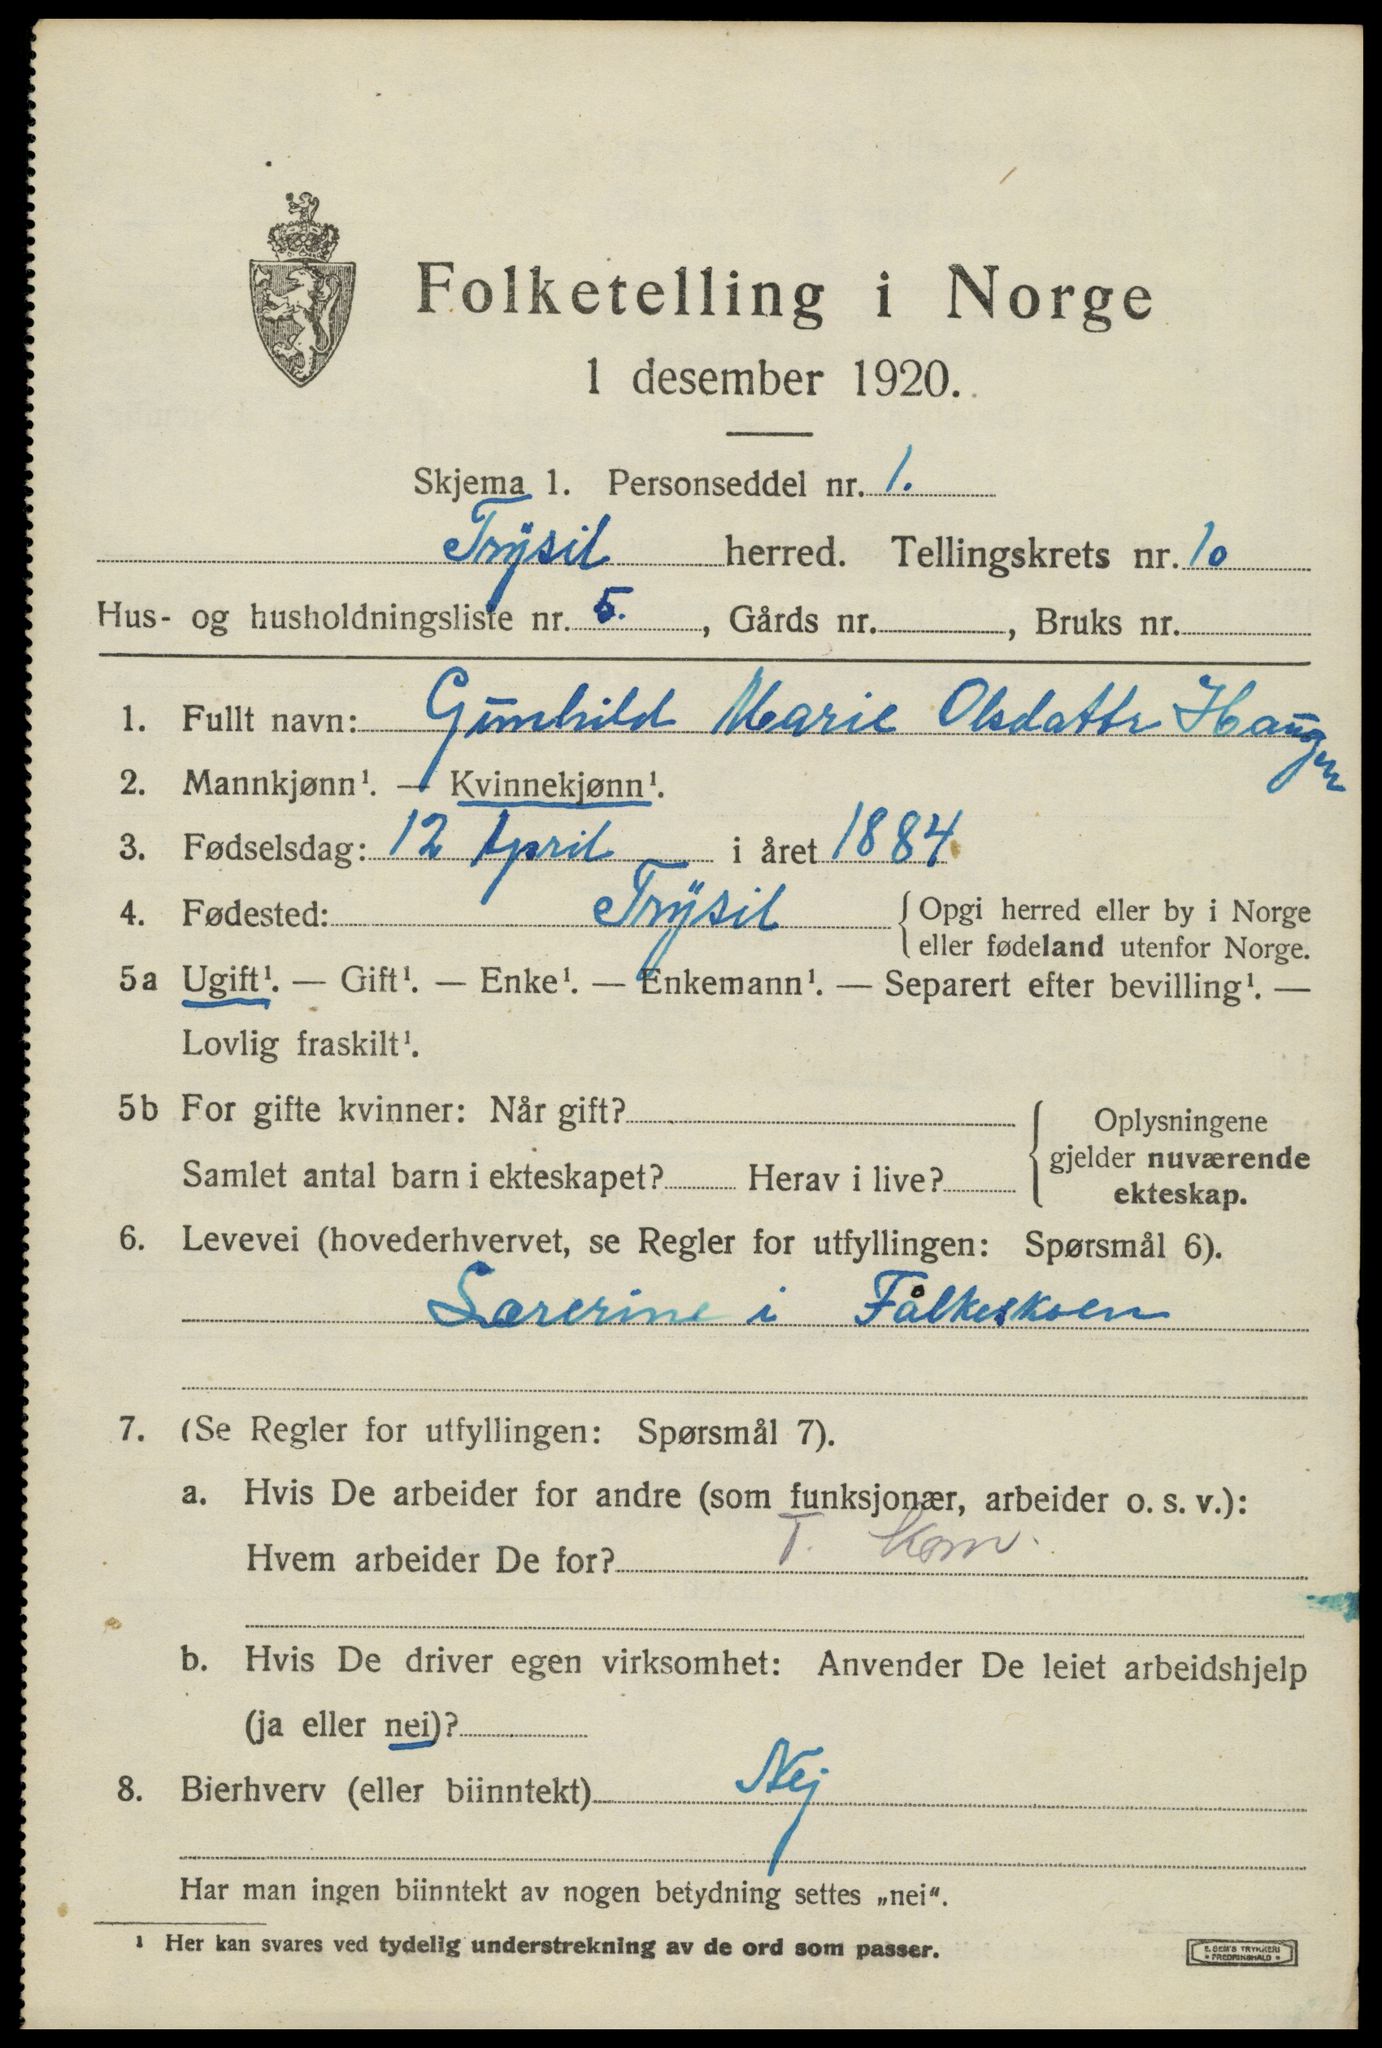 Folketelling i Norge
1 desember 1920.
Skjema 1. Personseddel nr. 1.
Trÿsil herred. Tellingskrets nr. 10
Hus- og husholdningsliste nr. 5., Gårds nr. , Bruks nr.
1. Fullt navn: Gūnhild Marie Olsdattr Haūgen
2. Mannkjønn¹. — Kvinnekjønn¹.
3. Fødselsdag: 12 April i året 1884
4. Fødested: Trÿsil { Opgi herred eller by i Norge
eller fødeland utenfor Norge.
5a Ugift¹. — Gift¹. — Enke¹. — Enkemann¹. — Separert efter bevilling¹. —
Lovlig fraskilt¹.
5b For gifte kvinner: Når gift? { Oplysningene
gjelder nuværende
Samlet antal barn i ekteskapet? Herav i live?
ekteskap.
6. Levevei (hovederhvervet, se Regler for utfyllingen: Spørsmål 6).
Lærerine i Fålkeskoen
7. (Se Regler for utfyllingen: Spørsmål 7).
a. Hvis De arbeider for andre (som funksjonær, arbeider o. s. v.):
Hvem arbeider De for? T. Kom.
b. Hvis De driver egen virksomhet: Anvender De leiet arbeidshjelp
(ja eller nei)?
8. Bierhverv (eller biinntekt) Nej
Har man ingen biinntekt av nogen betydning settes „nei“.
¹ Her kan svares ved tydelig understrekning av de ord som passer.
E. SEM'S TRYKKERI
* FREDRIKSHALD *